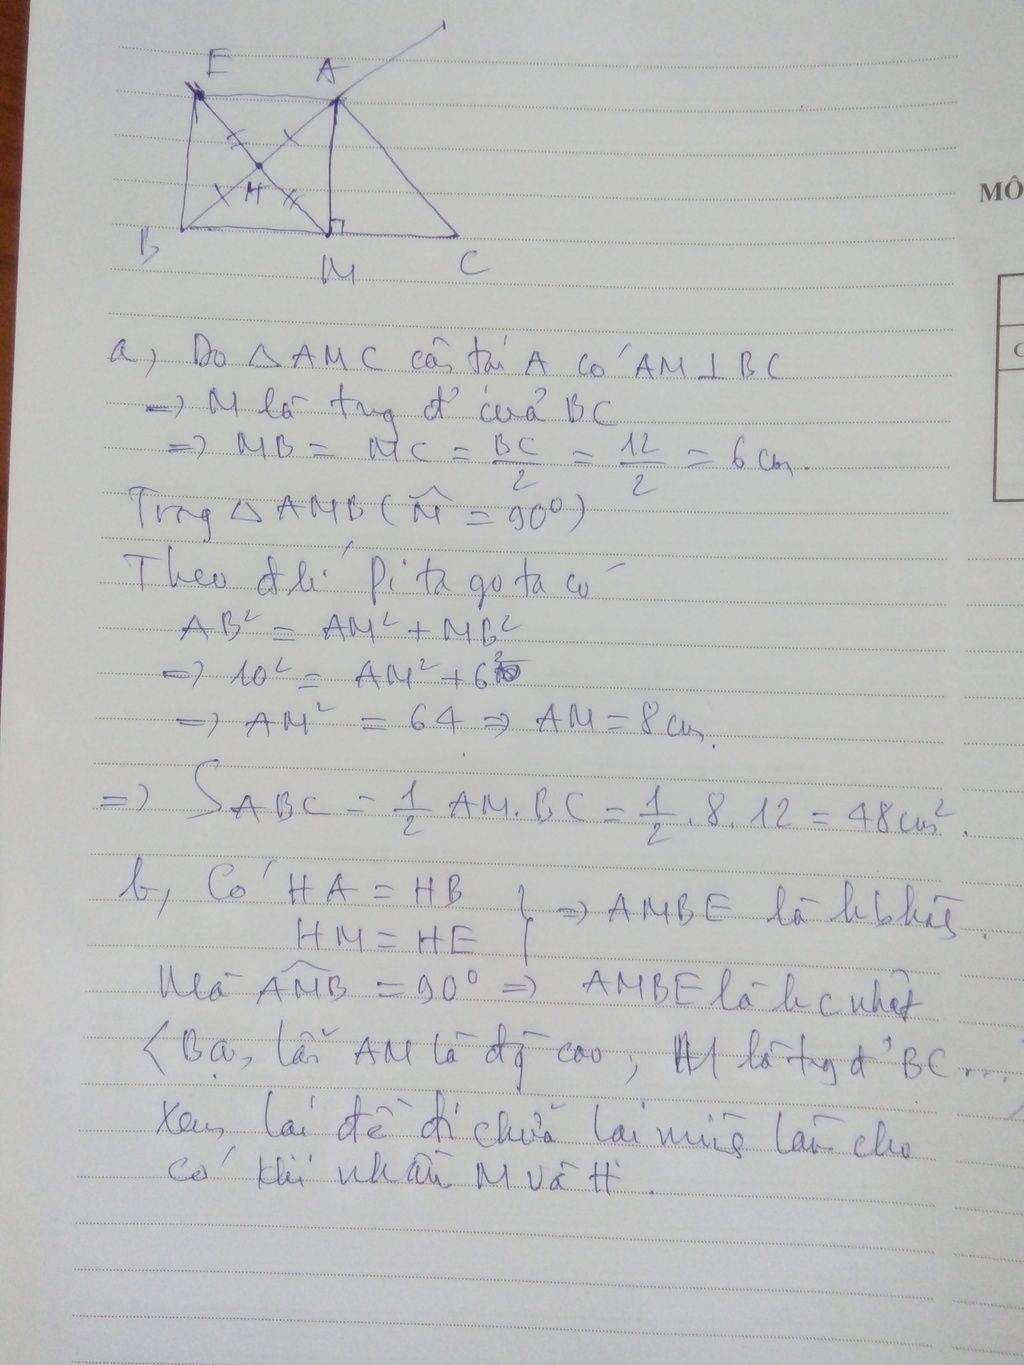 E A
H
B M C
MÔ
C
a, Do △AMC cân tại A có AM⊥BC
=> M là trug đ' của BC
=> MB = MC = BC/2 = 12/2 = 6 cm.
Trog △AMB (M̂ = 90⁰)
Theo đ lí Pi ta go ta có
AB² = AM² + MB²
=> 10² = AM² + 6²
=> AM² = 64 => AM = 8 cm.
=> S ABC = 1/2 AM. BC = 1/2 . 8. 12 = 48 cm².
b, Có HA = HB
HM = HE } => AMBE là h b hàh.
Mà AMB̂ = 90⁰ => AMBE là h c nhật
(Bạn lấy AM là đg cao, M là trg đ' BC ...)
Xem lại đề đi chứ lại mà lần cho
có khi nhầm M và H.